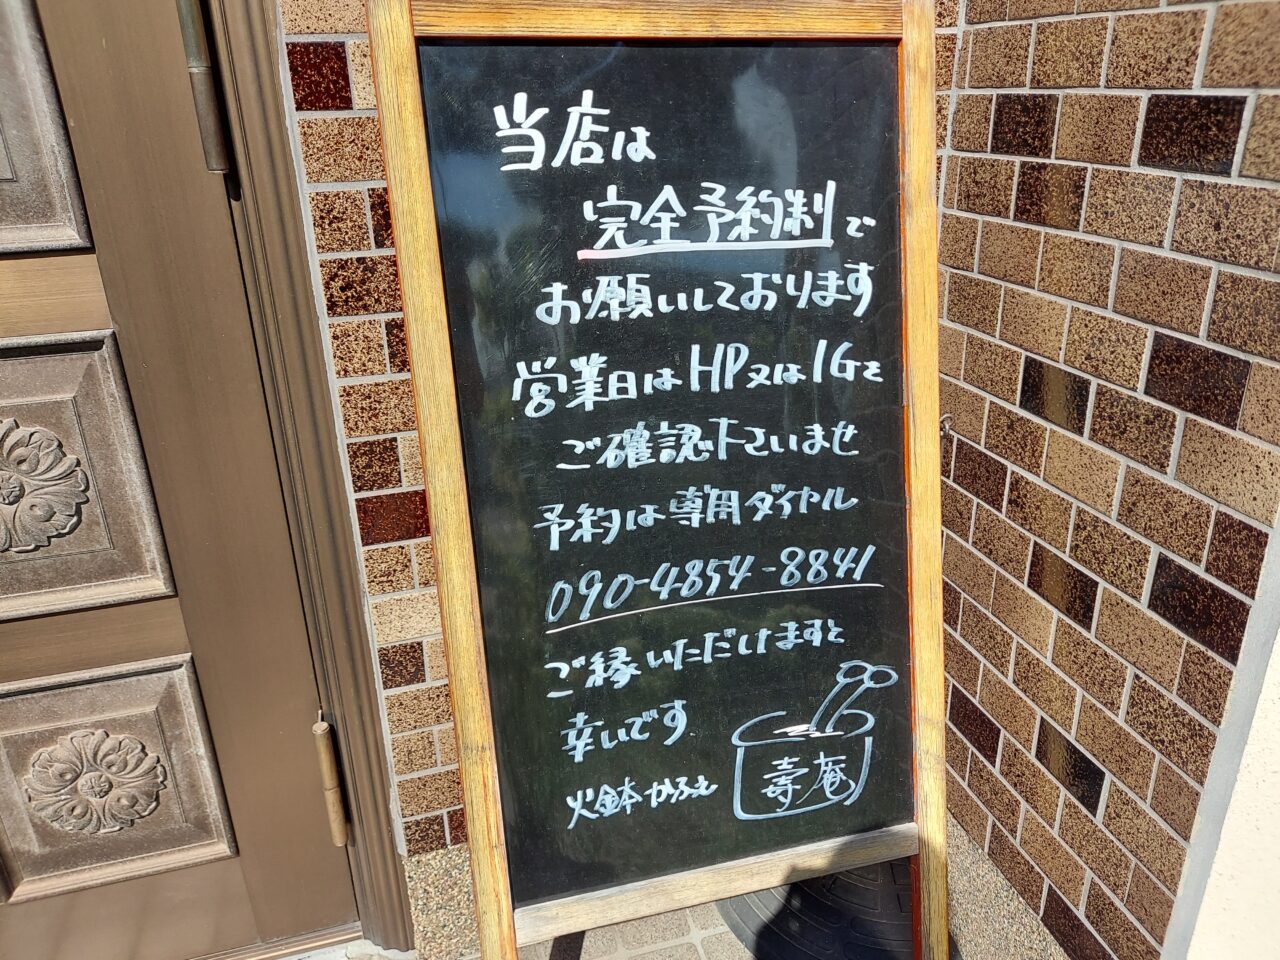 当店は
完全予約制で
お願いしております
営業日はHP又はIGを
ご確認下さいませ
予約は専用ダイヤル
090-4854-8841
ご縁いただけますと
幸いです
火鉢かふぇ
寿庵